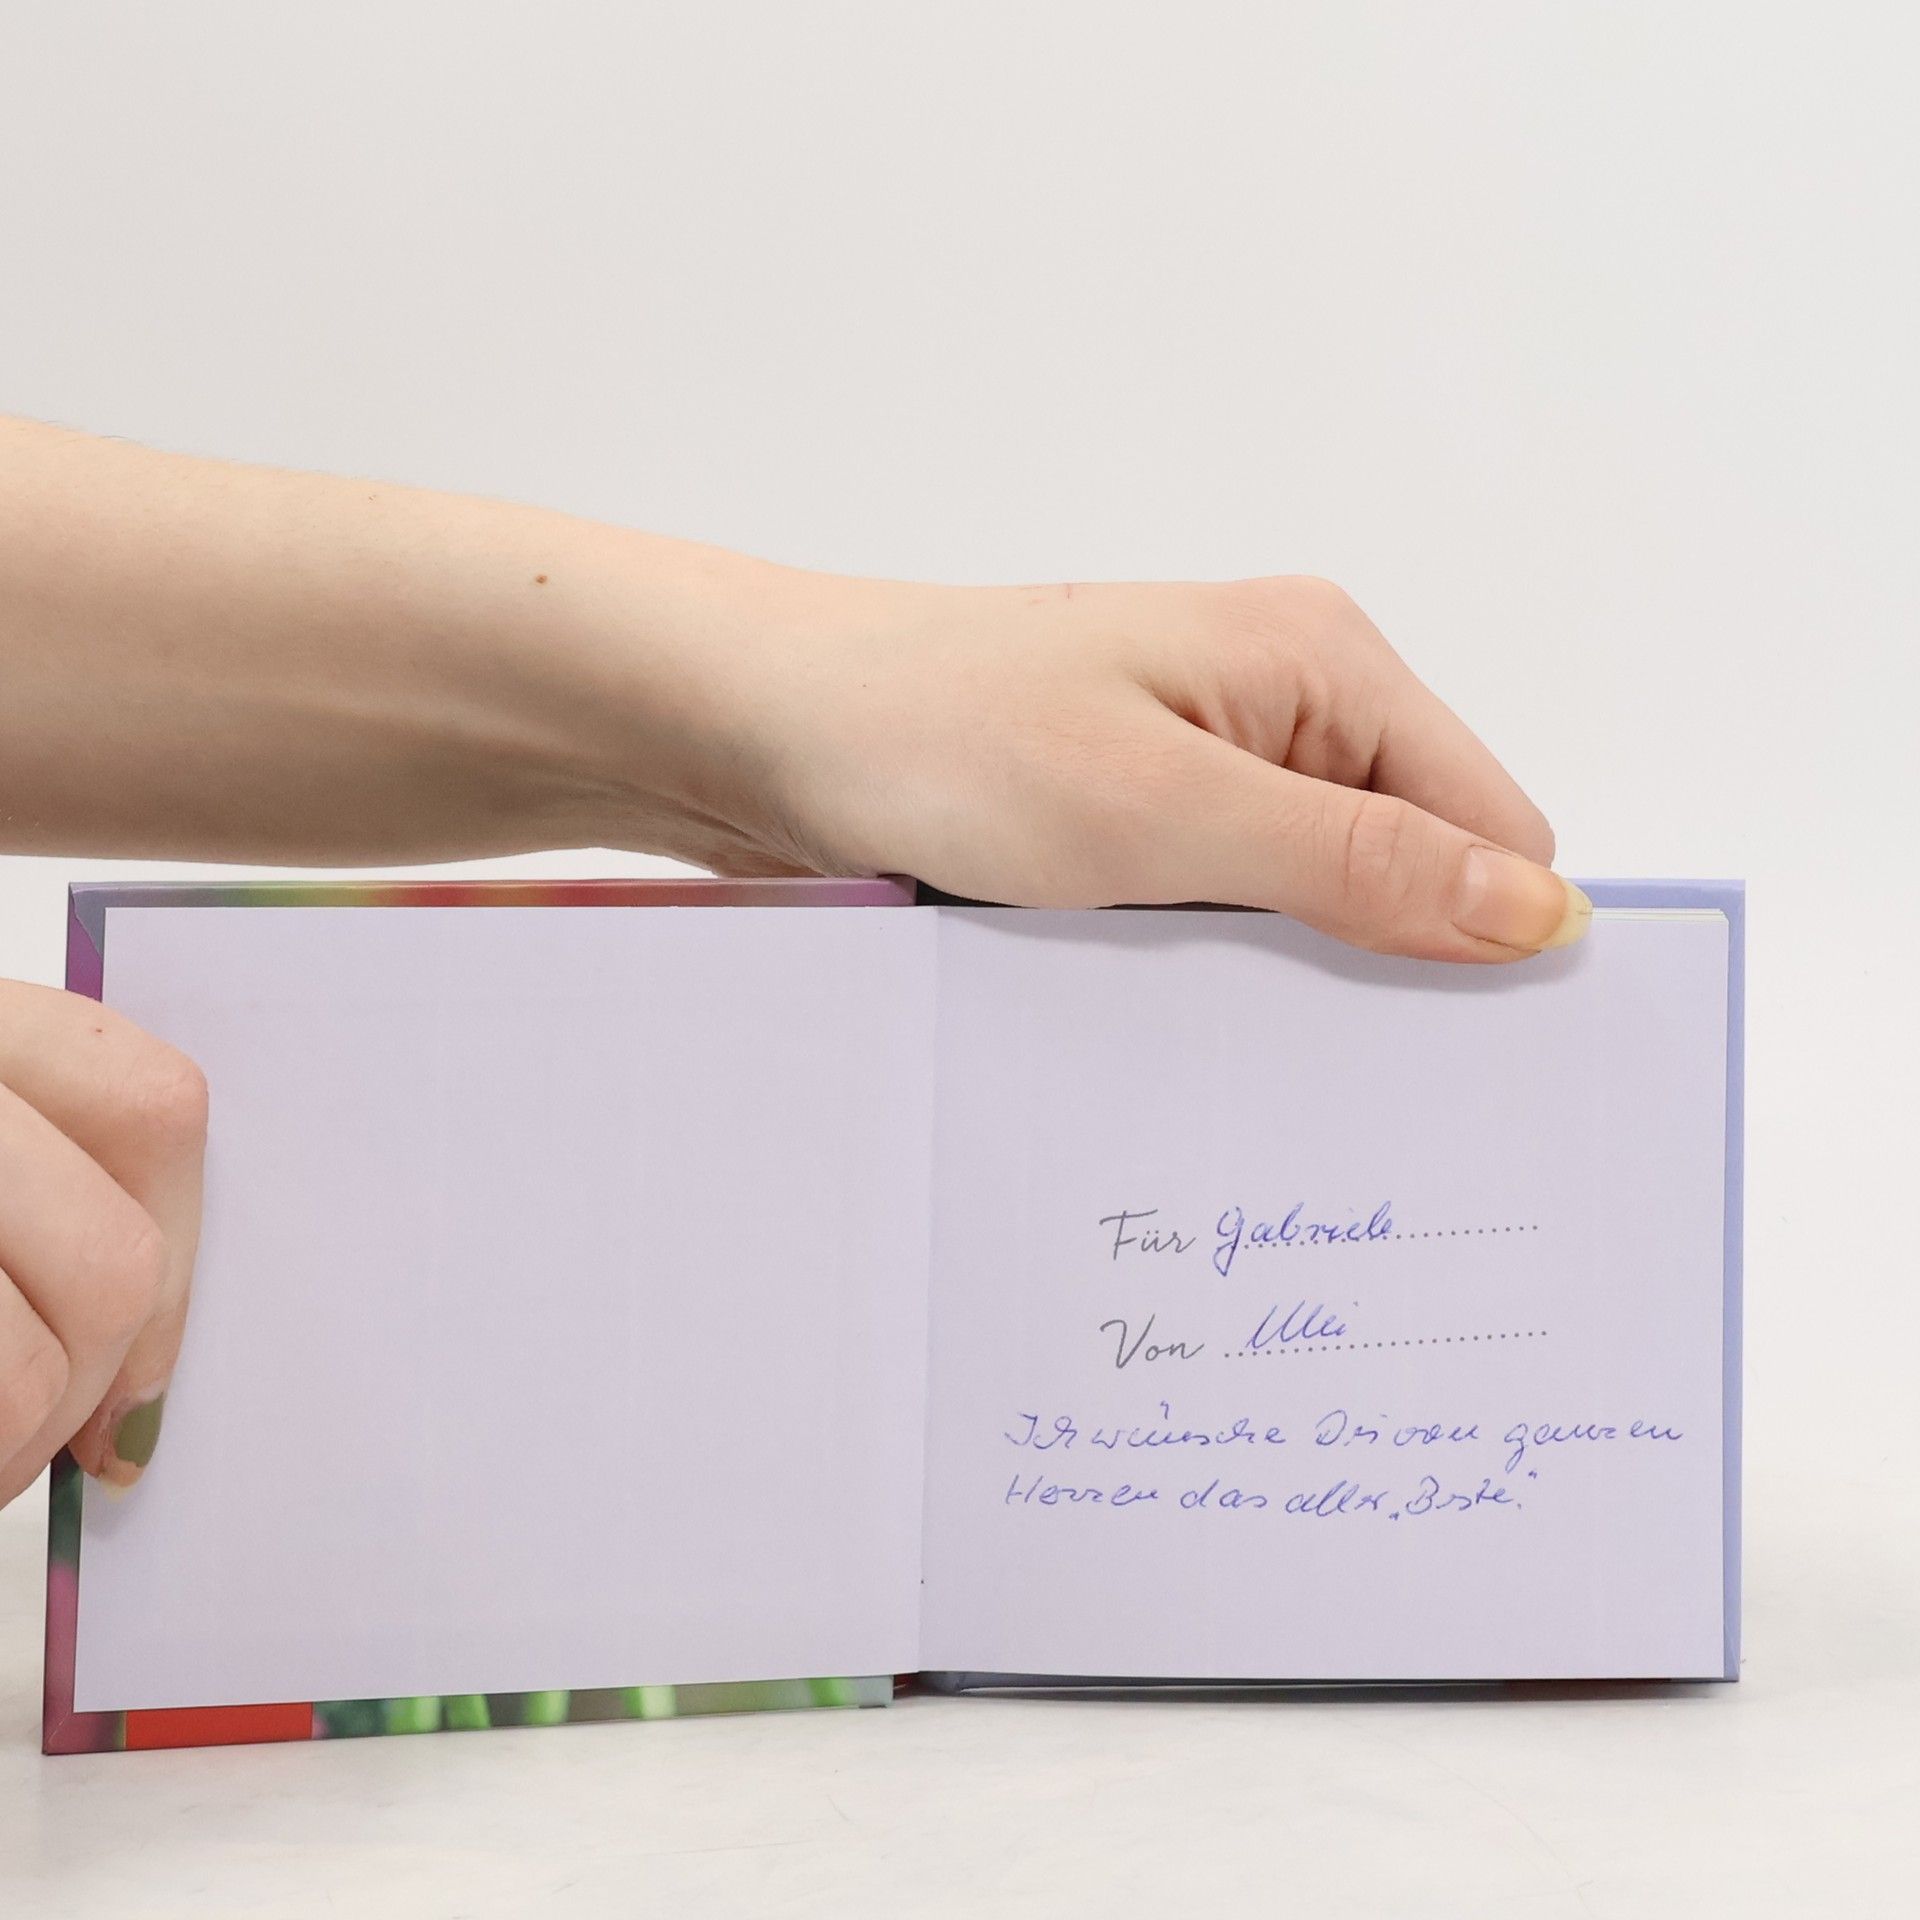 Für Gabriele
Von Ulli
Ich wünsche Dir von ganzen
Herzen das aller „Beste."